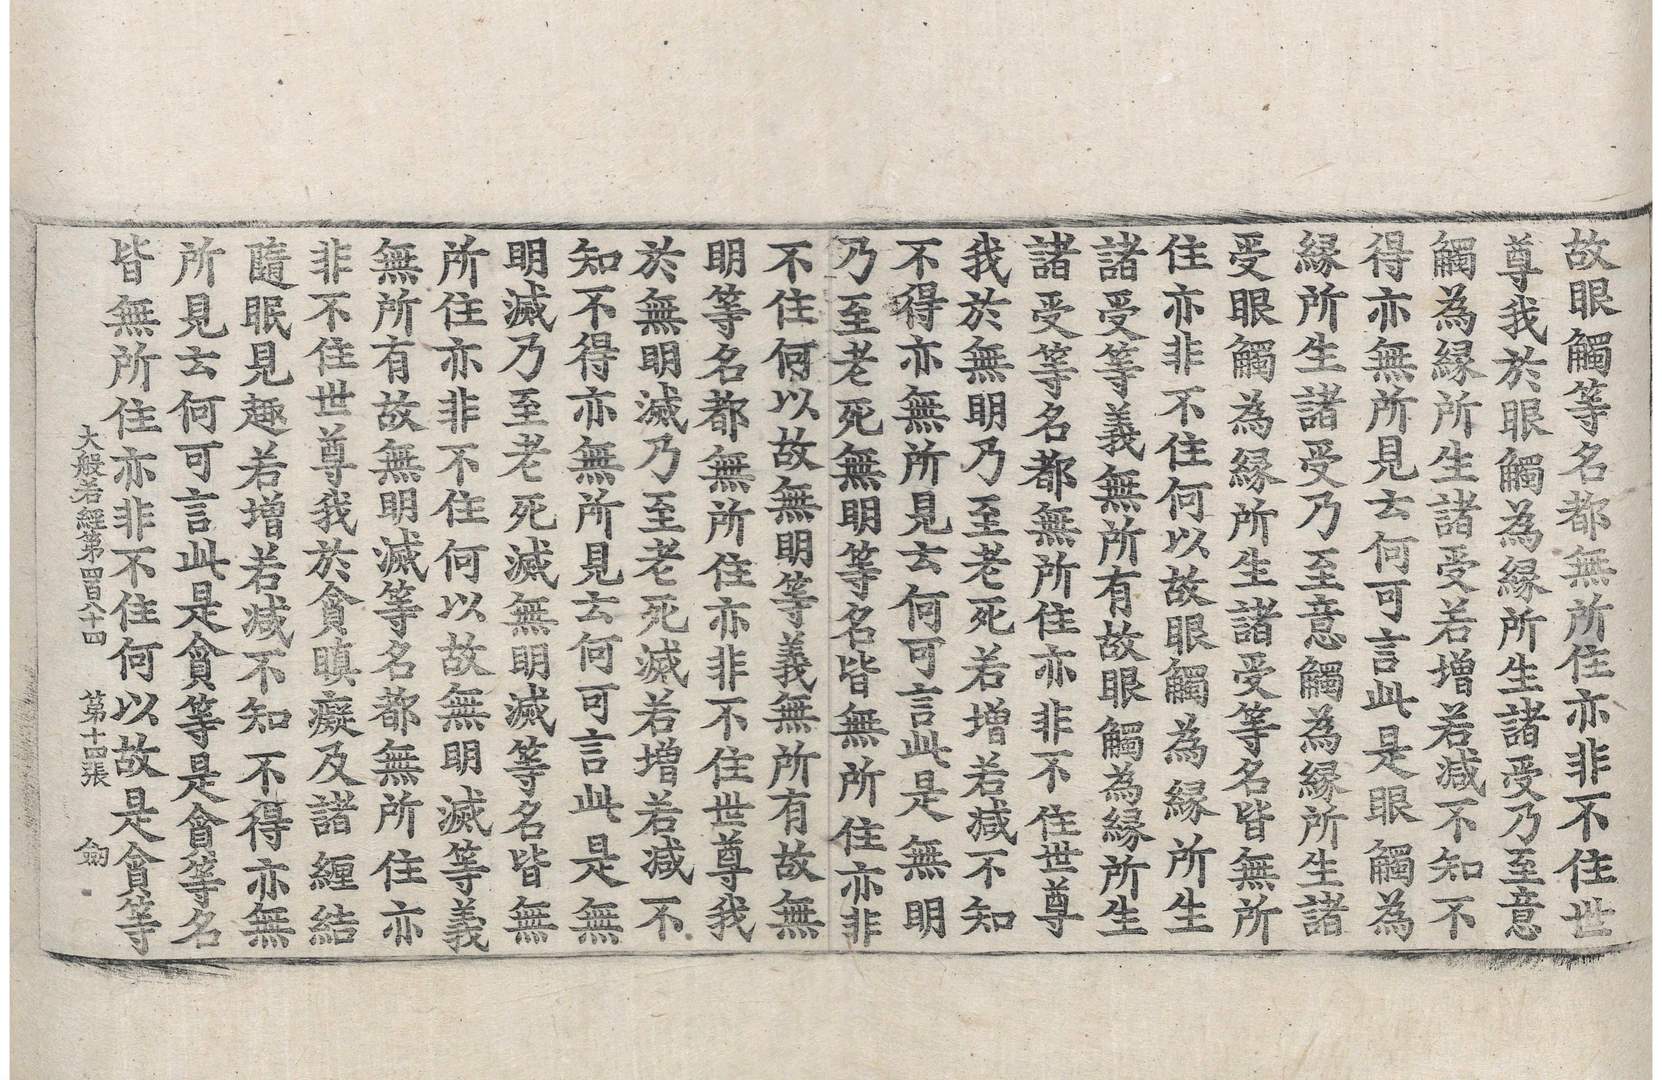 故眼觸等名都無所住亦非不住世
尊我於眼觸為縁所生諸受乃至意
觸為縁所生諸受若增若減不知不
得亦無所見云何可言此是眼觸為
縁所生諸受乃至意觸為縁所生諸
受眼觸為縁所生諸受等名皆無所
住亦非不住何以故眼觸為縁所生
諸受等義無所有故眼觸為縁所生
諸受等名都無所住亦非不住世尊
我於無明乃至老死若增若減不知
不得亦無所見云何可言此是無明
乃至老死無明等名皆無所住亦非
不住何以故無明等義無所有故無
明等名都無所住亦非不住世尊我
於無明滅乃至老死滅若增若減不
知不得亦無所見云何可言此是無
明滅乃至老死滅無明滅等名皆無
所住亦非不住何以故無明滅等義
無所有故無明滅等名都無所住亦
非不住世尊我於貪瞋癡及諸纏結
隨眠見趣若增若減不知不得亦無
所見云何可言此是貪等是貪等名
皆無所住亦非不住何以故是貪等
大般若經第四百八十四 第十四張 劒